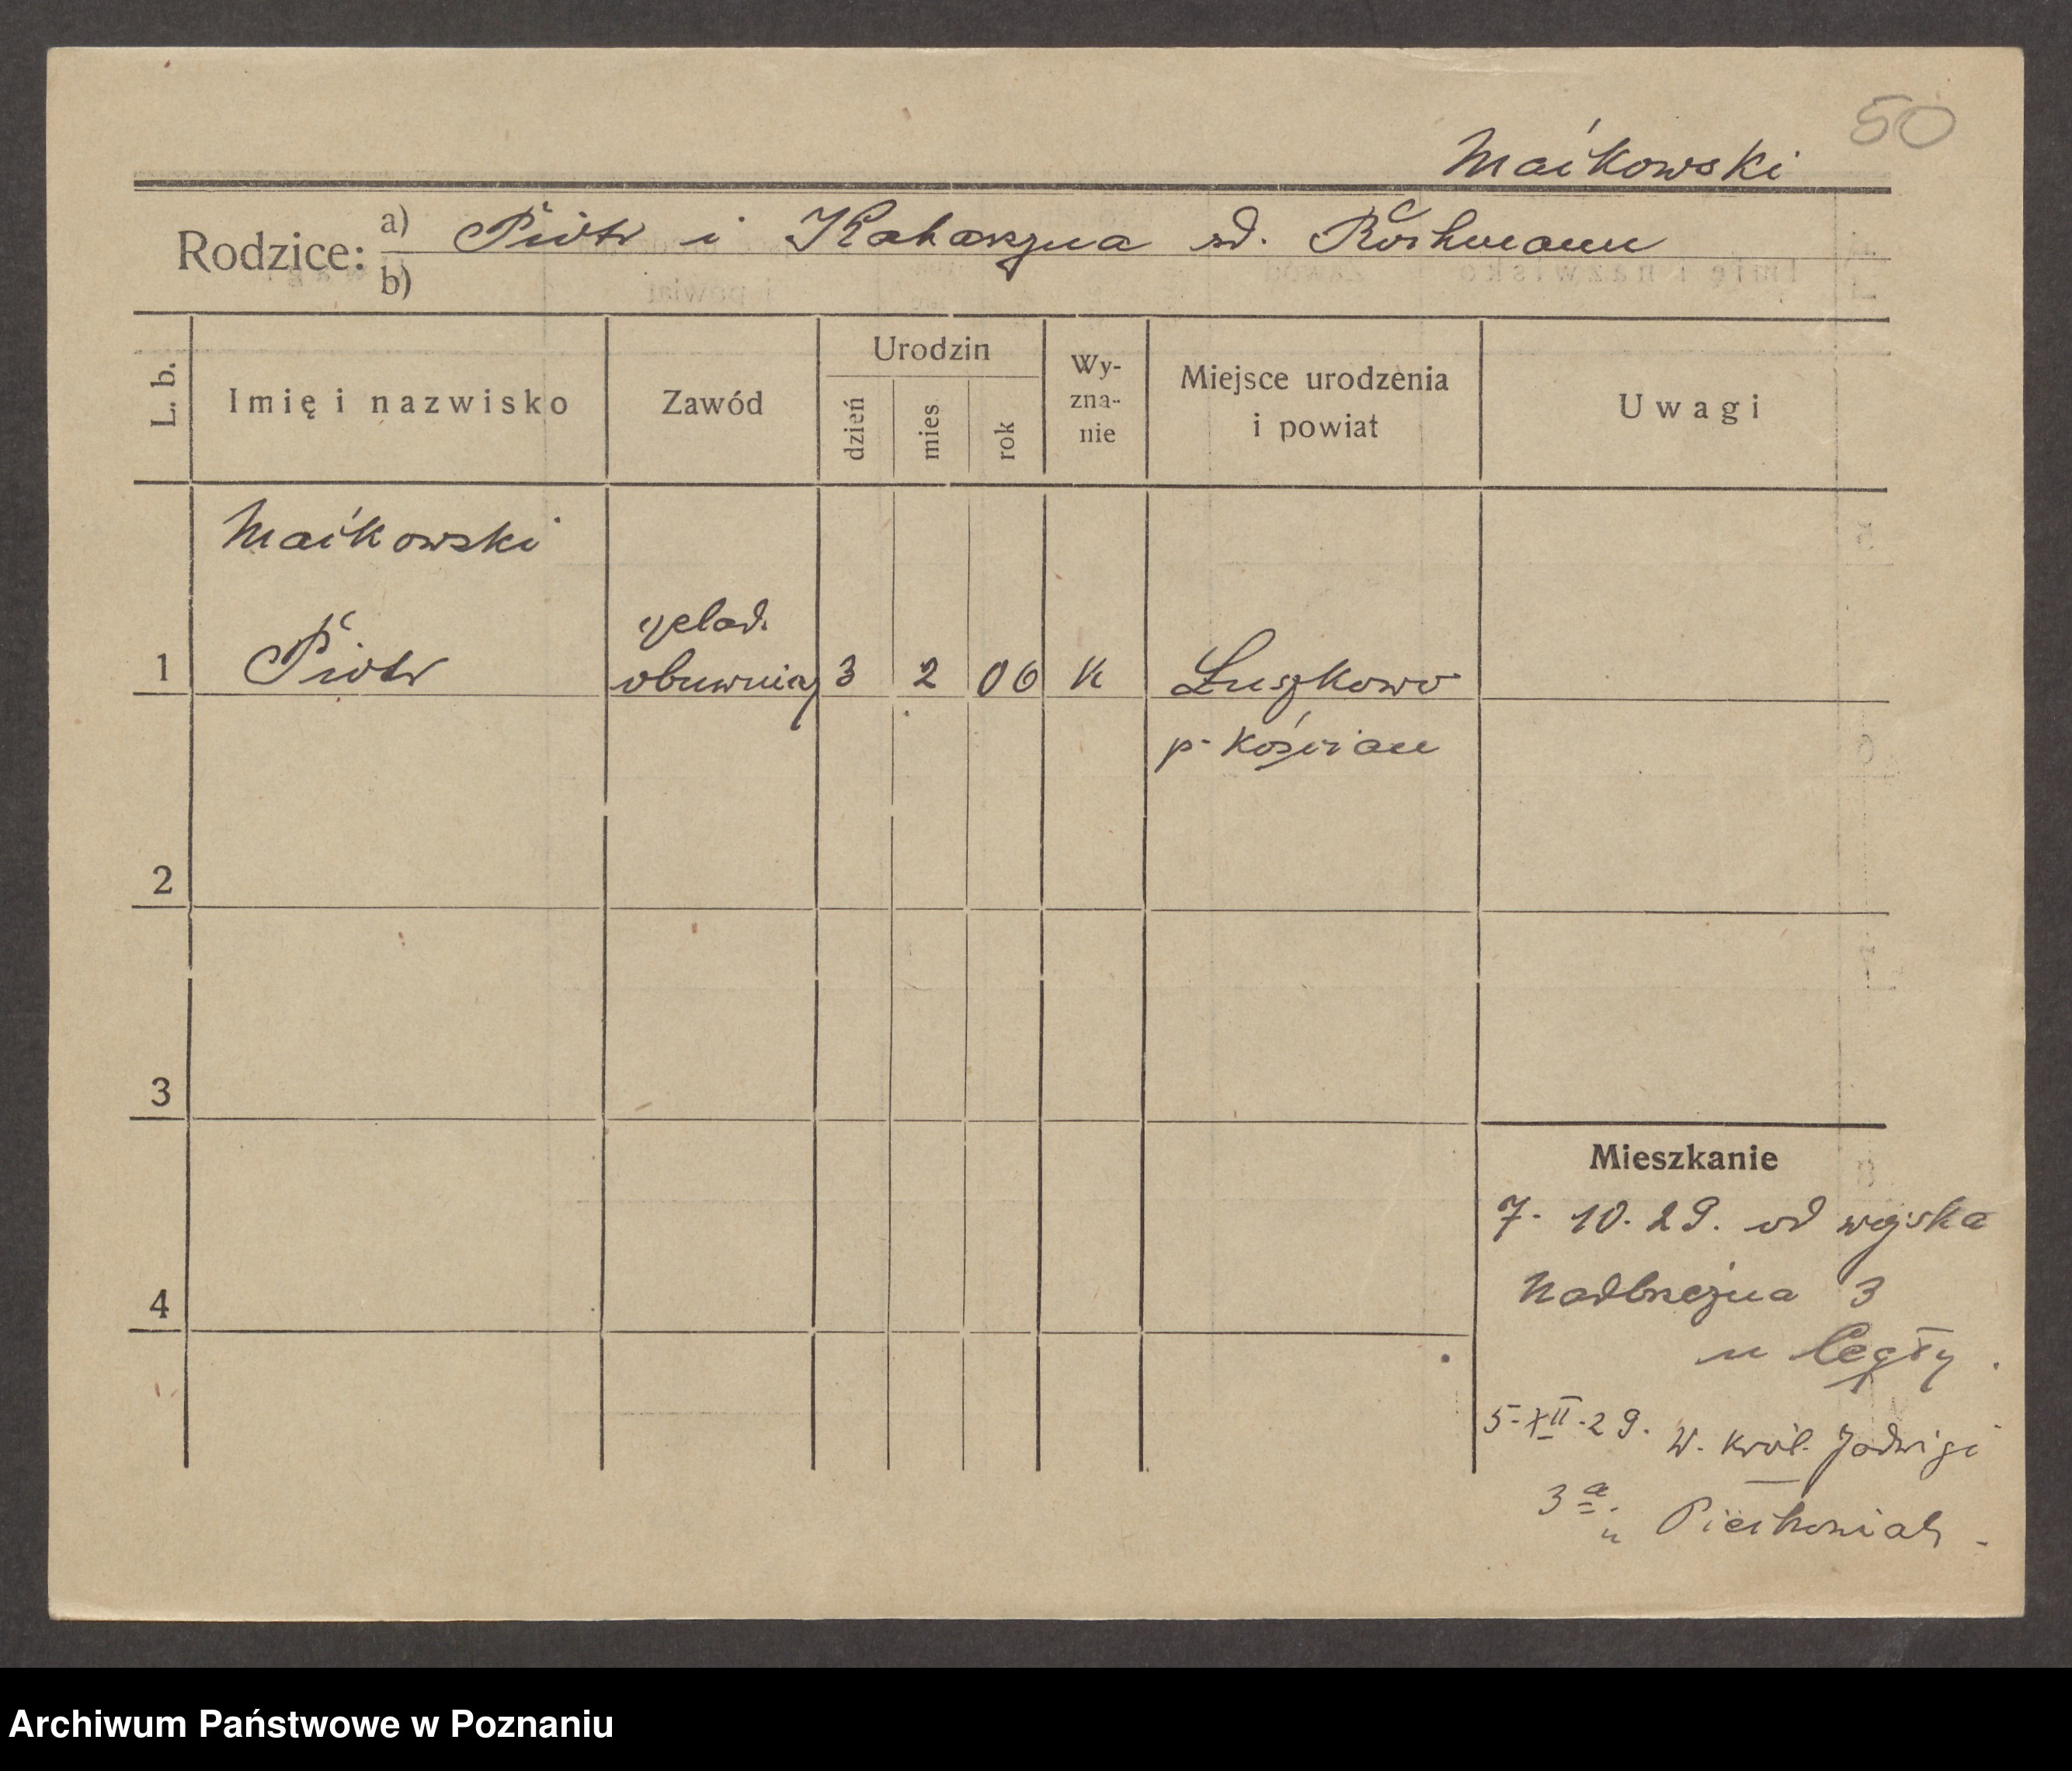 50
Maćkowski
Rodzice: a) Piotr i Katarzyna zd.
b)
L. b.
Imię i nazwisko
Zawód
Urodzin
dzień
mies
rok
Wy-
zna-
nie
Miejsce urodzenia
i powiat
Uwagi
Maćkowski
1 Piotr
czelad.
obuwniczy
3 2 06 K Łuszkowo
p. Kościan
2
3
4
Mieszkanie
7. 10. 29. od wojska
Nadbrzeżna 3
u Cegły.
5-XII-29. W. Król. Jadwigi
3a u
Archiwum Państwowe w Poznaniu